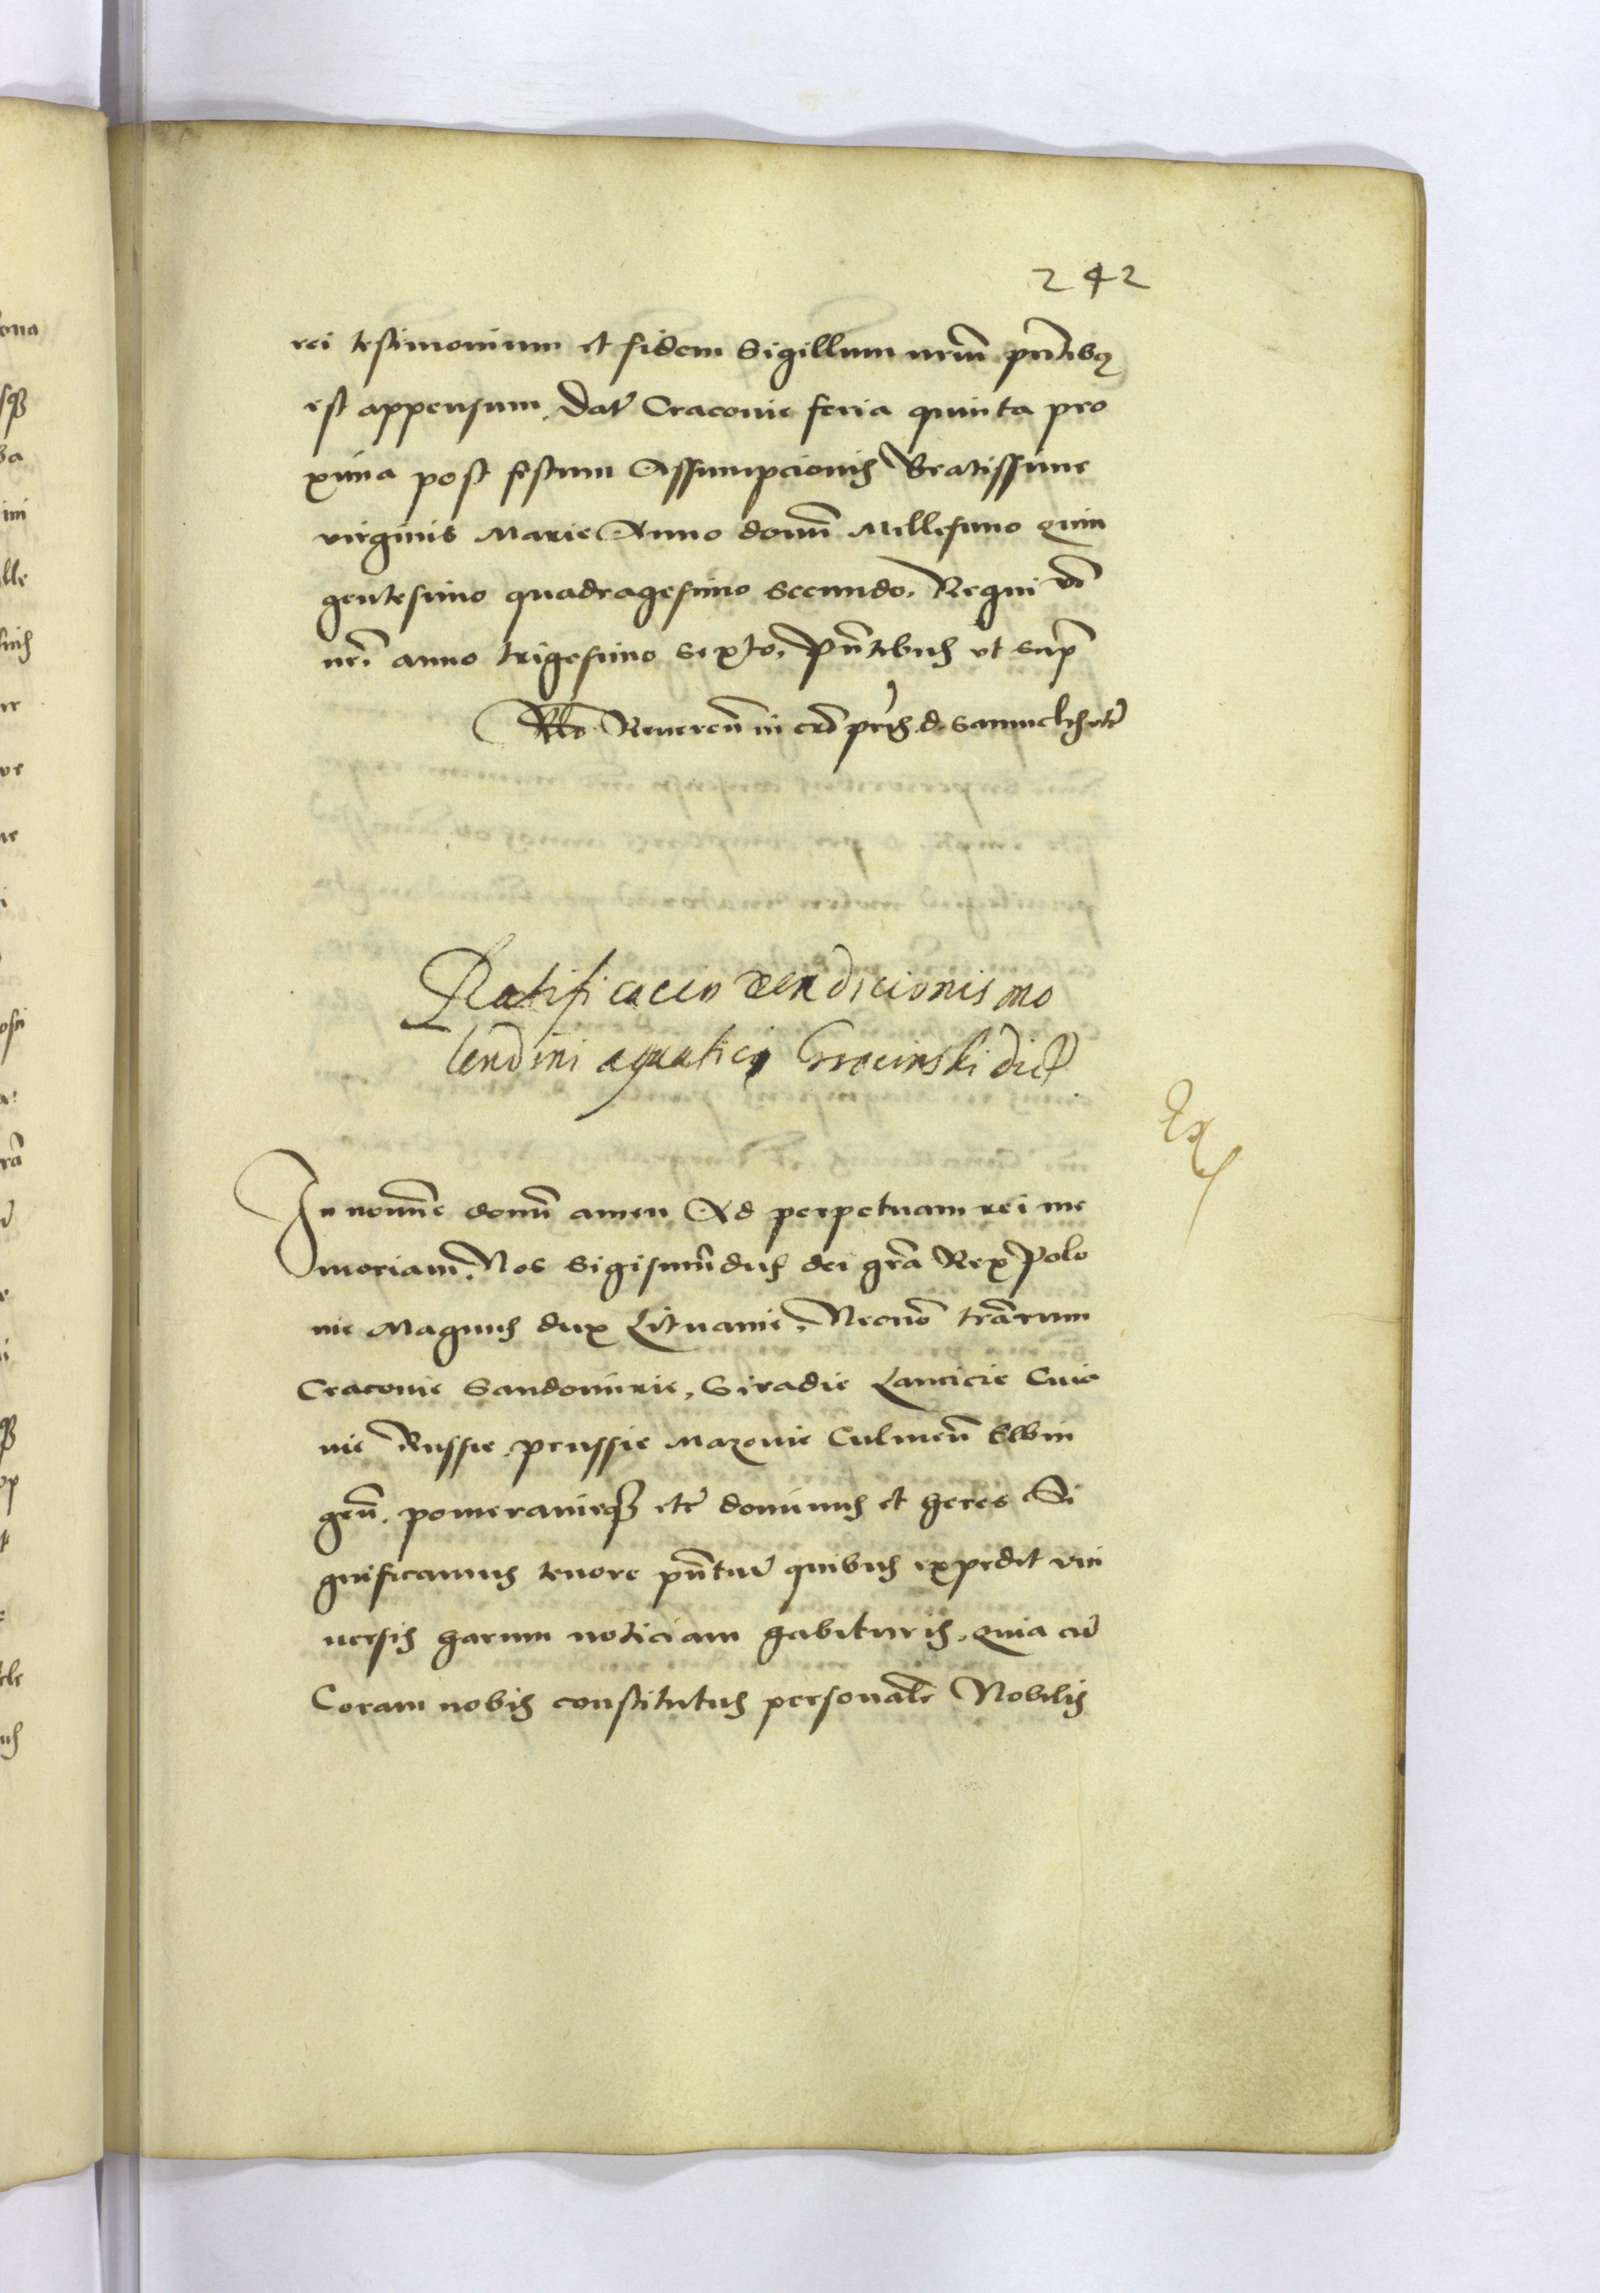 242
rei testimonium et fidem Sigillum nrm̃ pñtibꝫ
est appensum. Dat̃ Cracovie feria quinta pro
xima post festum Assumpcionis Beatissime
virginis Marie Anno domĩ Millesimo quin
gentesimo quadragesimo secundo, Regni vẽ
nrĩ anno trigesimo sexto, Pñtibus ut supᵃ
Rlõ Reveren̄ in crõ pr̃is d. Samuelis etc̃
Ratificacio vendicionis mo
lendini aquatici dict
Ex
In nomĩe domĩ amen Ad perpetuam rei me
moriam. Nos Sigismũdus dei grã Rex Polo
nie Magnus dux Lituanie, Necnõ trãrum
Cracovie Sandomirie, Siradie Lancicie Cuia
vie Russie, prussie Mazovie Culmeñ Elbin
geñ. pomeranieqꝫ etc̃ dominus et heres Si
gnificamus tenore pñtiũ quibus expedit uni
versis harum noticiam habituris, quia cũ
Coram nobis constitutus personalr̃ Nobilis